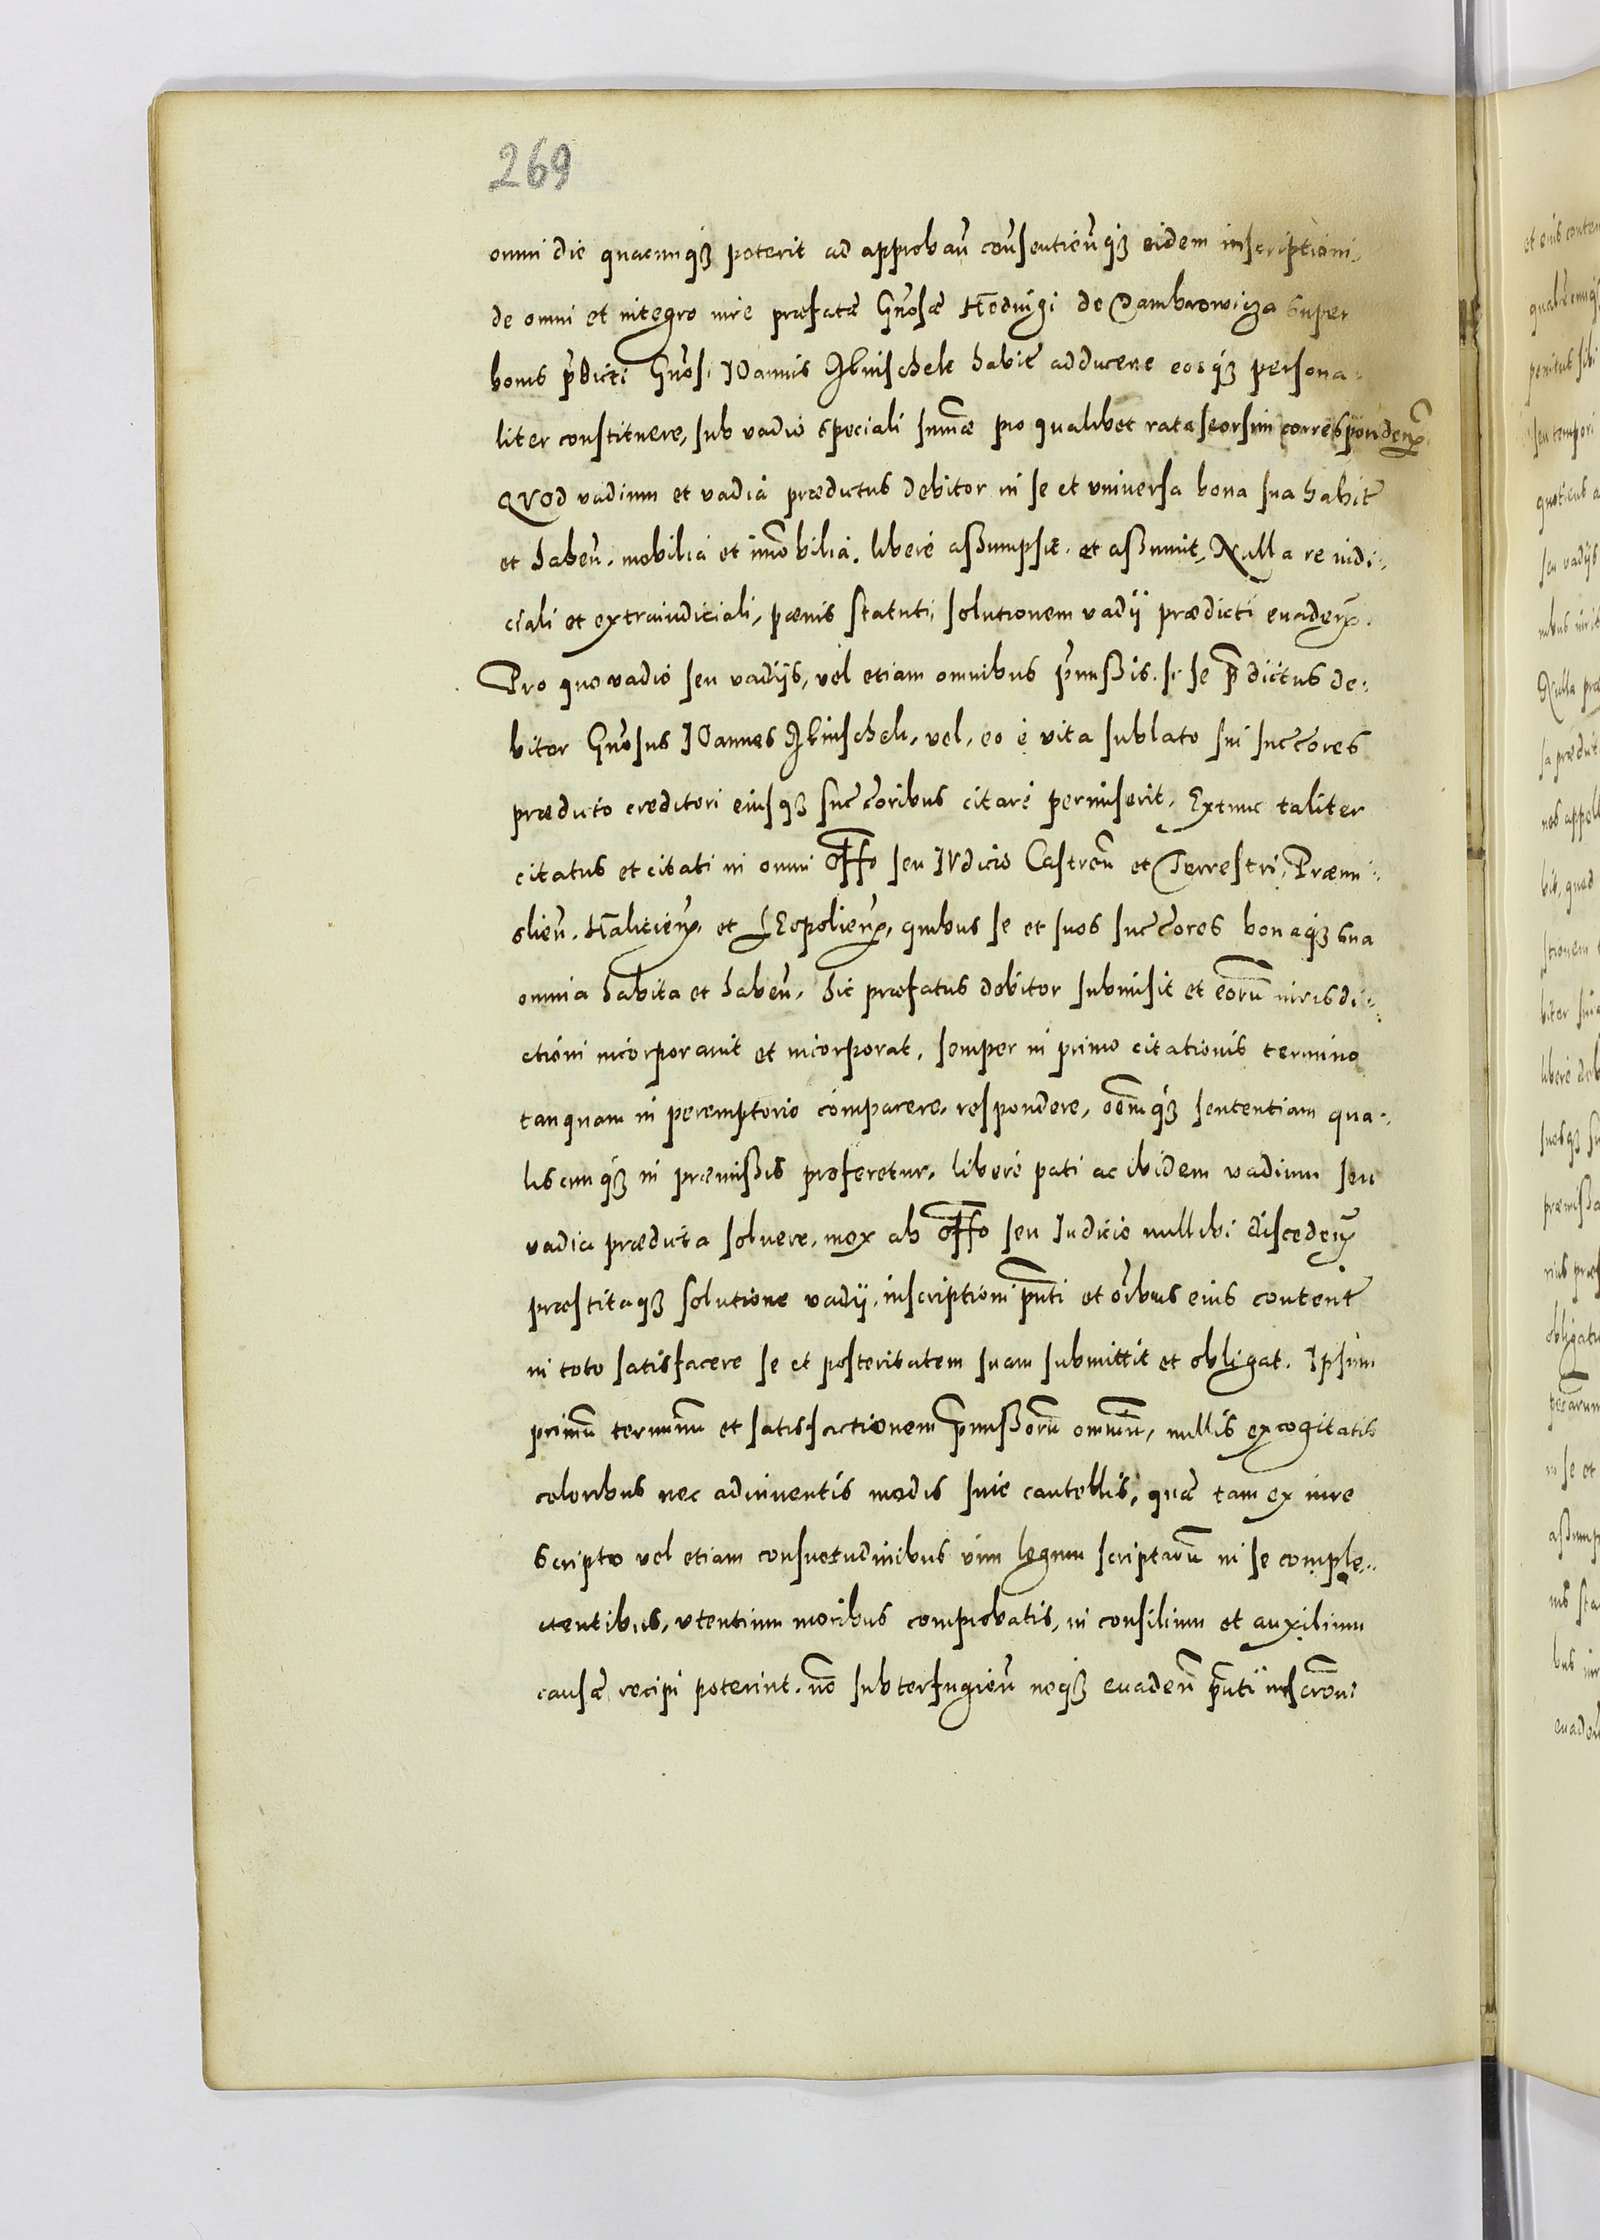 269
omni die quacunq3 poterit ad approban̄ consentien̄q3 eidem inscriptioni,
de omni et integro iure præfatæ Gn̄osæ Hedvigi de Dambrowicza super
bonis p̄dicti Gn̄osi IOannis Skinschek habit̄ adducere eosq3 persona-
liter constituere, sub vadio speciali sum̄æ pro qualibet rata seorsim correspōnden̄.
QVOd vadium et vadia prædictus debitor in se et vniuersa bona sua habit̄
et haben̄. mobilia et im̄obilia. liberè aßumpsit. et aßumit, Nulla re iudi-
ciali et extraiudiciali, pœnis statuti, solutionem vadij prædicti euaden̄.
Pro quo vadio seu vadijs, vel etiam omnibus p̄mißis. si se p̄dictus de-
bitor Gn̄osus IOannes Skinschek, vel, eo è vita sublato sui succ̄ores
prædicto creditori eiusq3 succ̄oribus citari permiserit, Extunc taliter
citatus et citati in omni off̄o seu IVdicio Castren̄ et Terrestri, Præmi-
slien̄. Halicien̄. et LEopolien̄. quibus se et suos succ̄ores bonaq3 sua
omnia habita et haben̄. hic præfatus debitor submisit et eorū iurisdi-
ctioni incorporauit et incorporat, semper in primo citationis termino
tanquam in peremptorio comparere, respondere, oēmq3 sententiam qua-
liscunq3 in præmißis proferetur, liberè pati ac ibidem vadium seu
vadia prædicta soluere, mox ab off̄o seu Iudicio nullibi disceden̄
præstitaq3 solutione vadij, inscriptioni p̄nti et oībus eius content̄
in toto satisfacere se et posteritatem suam submittit et obligat. Ipsum
primū terminum et satisfactionem p̄mißorū omniū, nullis excogitatis
coloribus nec adinuentis modis siue cautellis, quæ tam ex iure
scripto vel etiam consuetudinibus vim legum scriptarū in se comple-
ctentibus, vtentium moribus comprobatis, in consilium et auxilium
causæ recipi poterint. nō subterfugien̄ neq3 euaden̄ p̄nti inscr̄oni